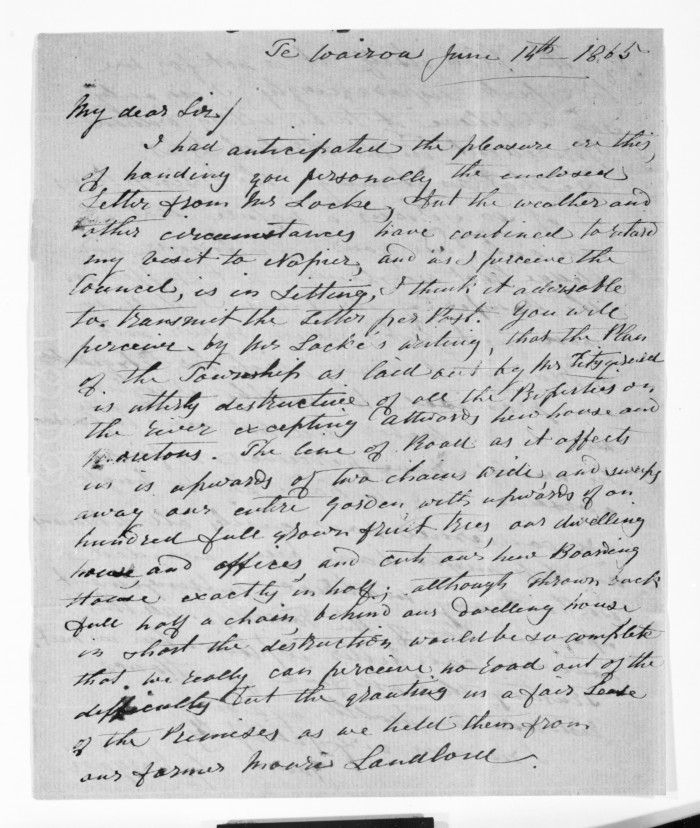 Te Wairoa June 14th 1865
My dear Sir/
I had anticipated the pleasure ere this,
of handing you personally the enclosed
Letter from Mr Locke, but the weather and
other circumstances have combined to retard
my visit to Napier, and as I perceive the
Council, is in Sitting, I think it adviseable
to transmit the Letter per Post. You will
perceive by Mr Locke's writing, that the Plan
of the Township as laid out by Mr Fitzgerald
is utterly destructive of all the Properties on
the river excepting Attwoods new house and
. The line of Road as it affects
us is upwards of two chains wide and sweeps
away our entire Garden with upwards of an
hundred full grown fruit trees, our dwelling
house and offices and cuts our new Boarding
House exactly in half; although thrown back
full half a chain behind our dwelling house
in short the destruction would be so complete
that we really can perceive no road out of the
difficulty but the granting us a fair Lease
of the Premises as we held them from
our former Maori Landlord.